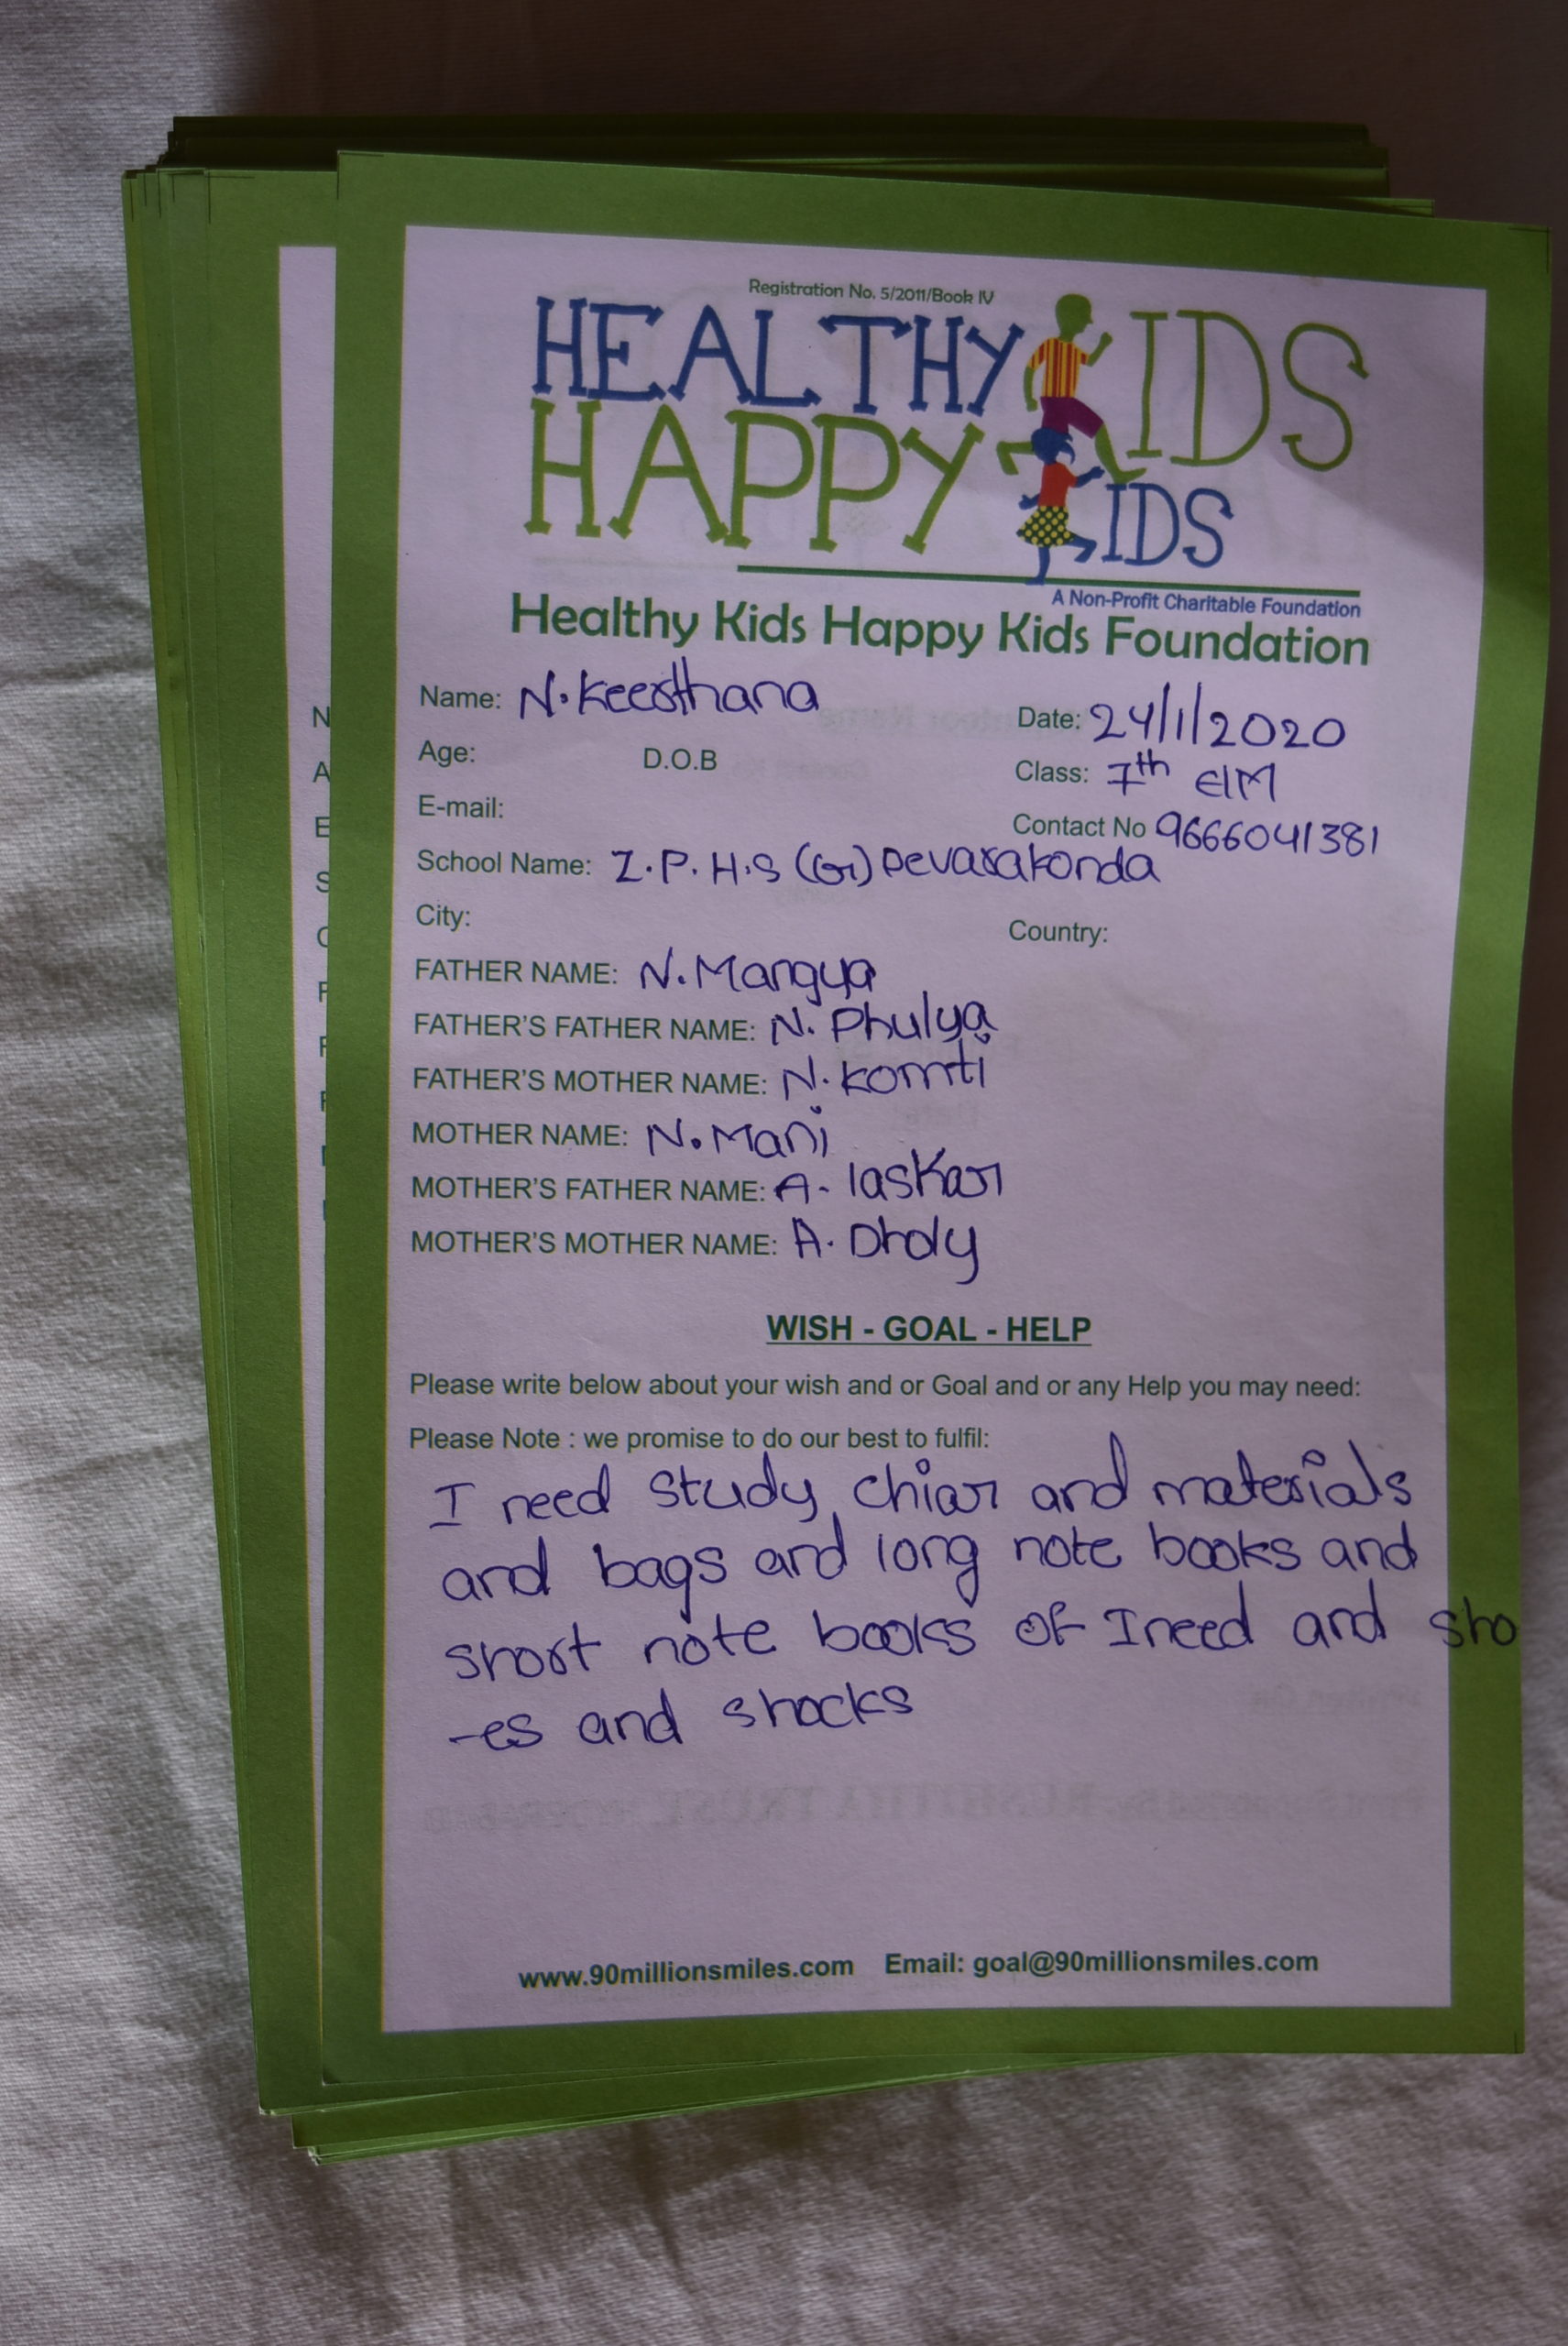 Registration No. 5/2011/Book IV
HEALTHY KIDS
HAPPY KIDS
A Non-Profit Charitable Foundation
Healthy Kids Happy Kids Foundation
Name: N. Keerthana
Date: 24/1/2020
Age: D.O.B
Class: 7th E/M
E-mail:
Contact No 9666041381
School Name: Z.P.H.S (G) Devarakonda
City:
Country:
FATHER NAME: N. Mangya
FATHER'S FATHER NAME: N. Phulya
FATHER'S MOTHER NAME: N. Komti
MOTHER NAME: N. Mani
MOTHER'S FATHER NAME: A. laskar
MOTHER'S MOTHER NAME: A. Dholy
WISH - GOAL - HELP
Please write below about your wish and or Goal and or any Help you may need:
Please Note : we promise to do our best to fulfil:
I need study chiar and materials
and bags and long note books and
short note books of I need and sho
-es and shocks
www.90millionsmiles.com Email: goal@90millionsmiles.com